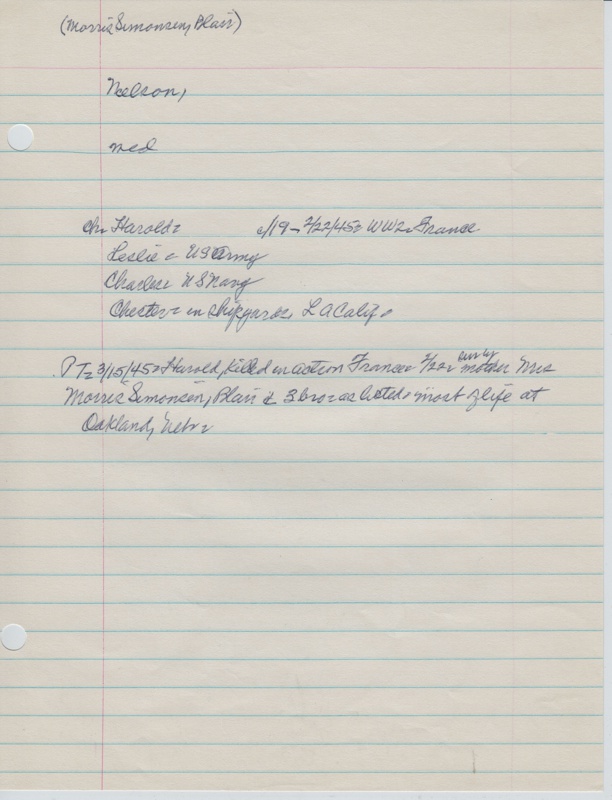 (Morris Simonsen, Blair)
Nelson,
med
ch- Harold- c/19 - 2/22/45- WW2- France
Leslie - US Army
Charles- US Navy
Chester- in shipyards- LA Calif-
PT- 3/15/45- Harold, killed in action France- 2/22- surv by mother Mrs
Morris Simonsen, Blair & 3 bro as listed- most of life at
Oakland, Nebr-